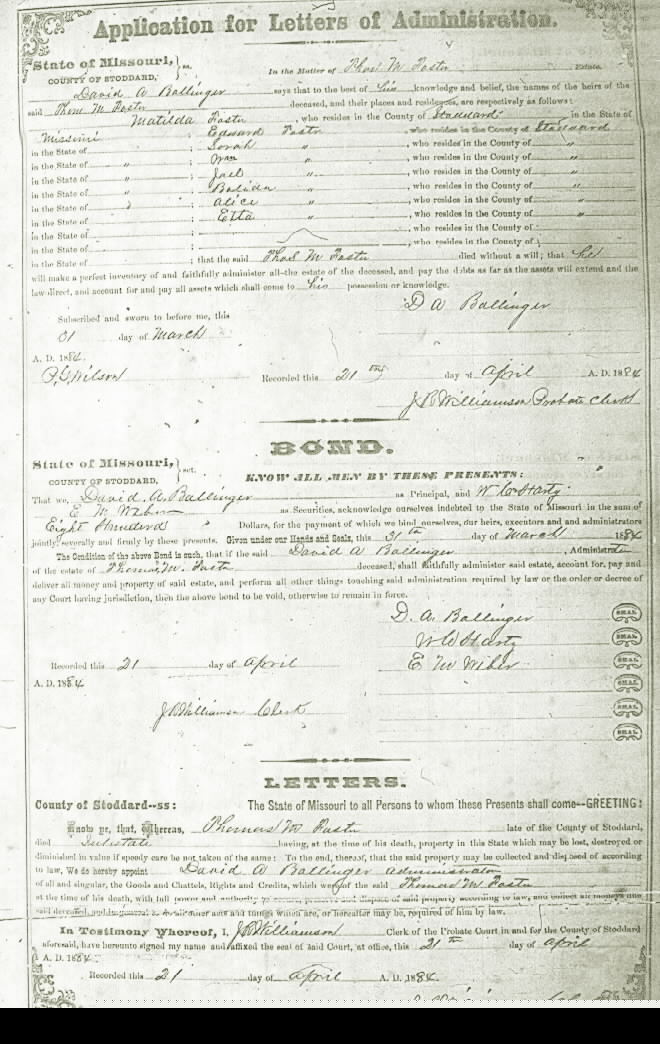 Application for Letters of Administration.
State of Missouri,
COUNTY OF STODDARD, ss.
In the Matter of Thos M Foster Estate.
David A Ballinger says that to the best of his knowledge and belief, the names of the heirs of the
said Thom M Foster deceased, and their places and residences, are respectively as follows:
Matilda Foster, who resides in the County of Stoddard in the State of
Missouri; Edward Foster, who resides in the County of Stoddard
in the State of " ; Sarah " , who resides in the County of "
in the State of " ; Wm " , who resides in the County of "
in the State of " ; Joel " , who resides in the County of "
in the State of " ; " , who resides in the County of "
in the State of " ; Alice " , who resides in the County of "
in the State of ; Etta " , who resides in the County of "
in the State of ; , who resides in the County of
in the State of ; , who resides in the County of
in the State of ; that the said Thos M Foster died without a will; that he
will make a perfect inventory of and faithfully administer all the estate of the deceased, and pay the debts as far as the assets will extend and the
law direct, and account for and pay all assets which shall come to his possession or knowledge.
D A Ballinger
Subscribed and sworn to before me, this
31 day of March
A. D. 1884.
P. G. Wilson Recorded this 21 day of April A. D. 1884
J R Williamson Probate Clerk
BOND.
State of Missouri,
COUNTY OF STODDARD, sct.
KNOW ALL MEN BY THESE PRESENTS:
That we, David A. Ballinger as Principal, and W C Harty
E M Weber as Securities, acknowledge ourselves indebted to the State of Missouri in the sum of
Eight Hundred Dollars, for the payment of which we bind ourselves, our heirs, executors and and administrators
jointly, severally and firmly by these presents. Given under our Hands and Seals, this 31 day of March 1884
The Condition of the above Bond is such, that if the said David A Ballinger, Administrator
of the estate of Thomas M. Foster deceased, shall faithfully administer said estate, account for, pay and
deliver all money and property of said estate, and perform all other things touching said administration required by law or the order or decree of
any Court having jurisdiction, then the above bond to be void, otherwise to remain in force.
D. A. Ballinger SEAL
W C Harty SEAL
Recorded this 21 day of April E M Weber SEAL
A. D. 1884 SEAL
J R Williamson Clerk SEAL
SEAL
LETTERS.
County of Stoddard--ss: The State of Missouri to all Persons to whom these Presents shall come--GREETING:
Know ye, that, Whereas, Thomas M Foster late of the County of Stoddard,
died Intestate having, at the time of his death, property in this State which may be lost, destroyed or
diminished in value if speedy care be not taken of the same: To the end, therefore, that the said property may be collected and disposed of according
to law, We do hereby appoint David A Ballinger administrator
of all and singular, the Goods and Chattels, Rights and Credits, which were of the said Thomas M Foster
at the time of his death, with full power and authority to dispose of said property according to law, and collect all moneys due
said deceased, and in general to do all other acts and things which are, or hereafter may be, required of him by law.
In Testimony Whereof, I, J R Williamson Clerk of the Probate Court in and for the County of Stoddard
aforesaid, have hereunto signed my name and affixed the seal of said Court, at office, this 21 th day of April
A. D. 1884
Recorded this 21 day of April A. D. 1884.